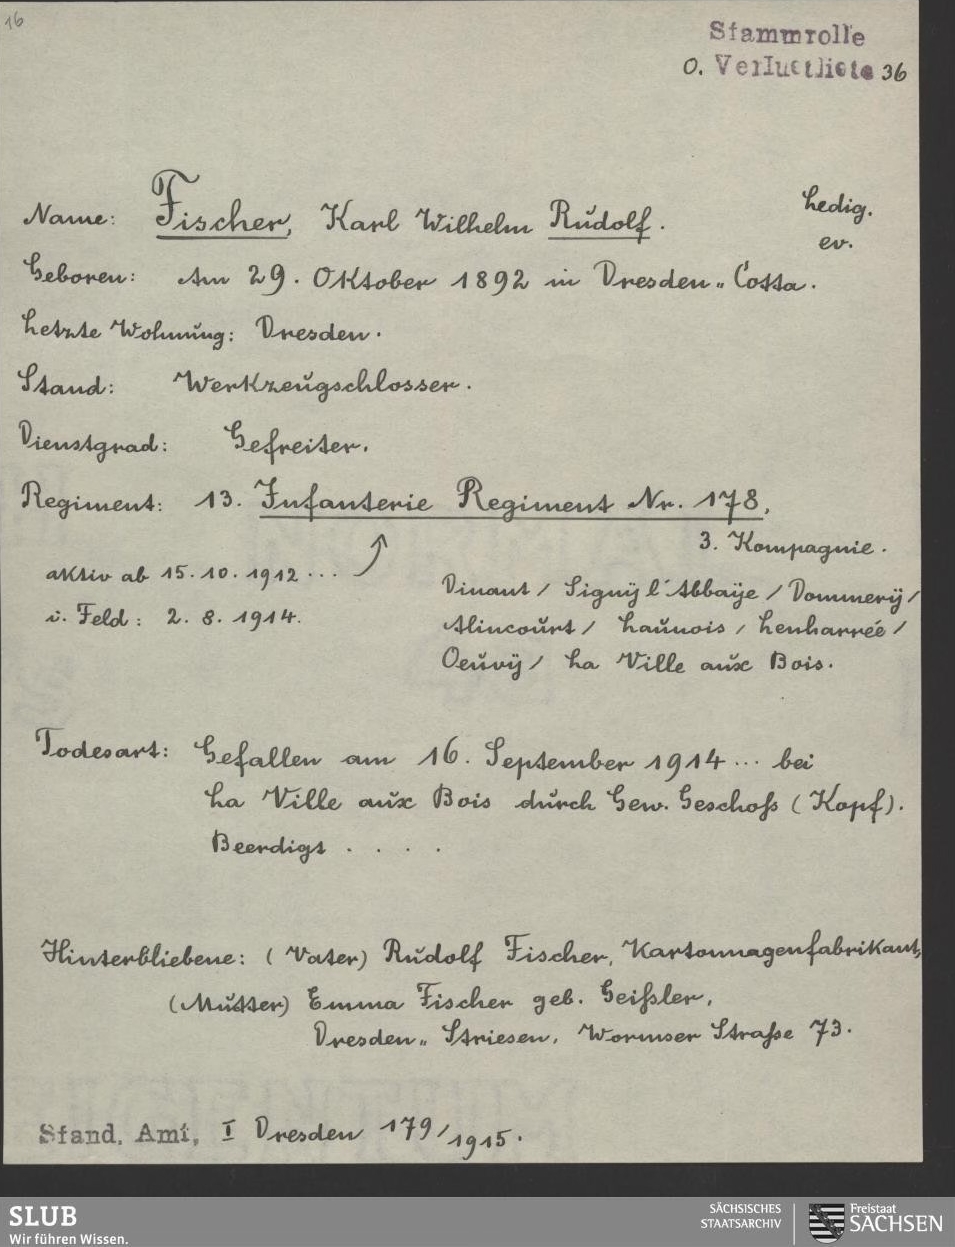 16
Stammrolle
O. Verlustliste 36
Name: Fischer, Karl Wilhelm Rudolf. Ledig.
ev.
Geboren: Am 29. Oktober 1892 in Dresden-Cotta.
Letzte Wohnung: Dresden.
Stand: Werkzeugschlosser.
Dienstgrad: Gefreiter.
Regiment: 13. Infanterie Regiment Nr. 178,
3. Kompagnie.
aktiv ab 15.10.1912 ...
i. Feld: 2. 8. 1914.
Dinant / Signÿ l'Abbaÿe / Dommerÿ /
Alincourt / Launois / Lenharrée /
Oeuvÿ / La Ville aux Bois.
Todesart: Gefallen am 16. September 1914 ... bei
La Ville aux Bois durch Gew. Geschoß (Kopf).
Beerdigt . . . .
Hinterbliebene: (Vater) Rudolf Fischer, Kartonnagenfabrikant,
(Mutter) Emma Fischer geb. Geißler,
Dresden-Striesen, Wormser Straße 73.
Stand. Amt, I Dresden 179/1915.
SLUB
Wir führen Wissen.
SÄCHSISCHES
STAATSARCHIV
Freistaat
SACHSEN